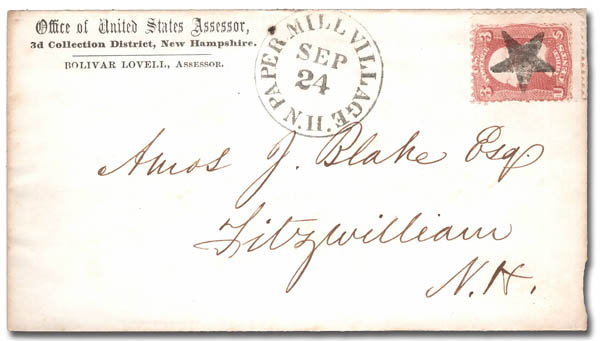 Office of United States Assessor,
3d Collection District, New Hampshire.
BOLIVAR LOVELL, Assessor.
PAPER MILL VILLAGE. N.H.
SEP
24
U S
3 3
Amos J. Blake Esq.
Fitzwilliam
N.H.